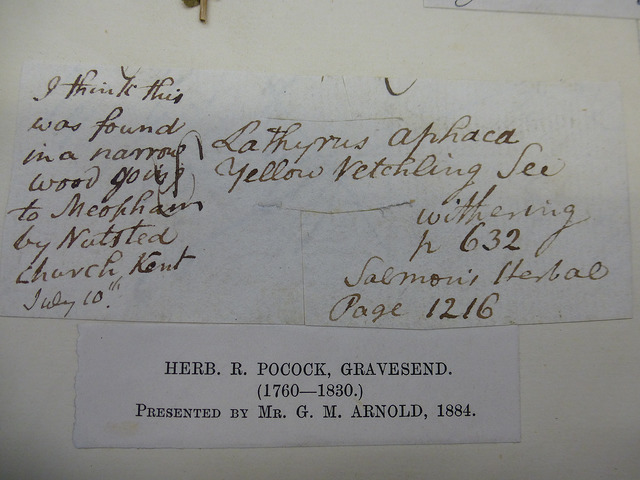 I think this
was found
in a narrow
wood going
to Meopham
by Nutsted
Church, Kent
July 10th.
Lathyrus aphaca
Yellow Vetchling See
withering
p 632
Salmon's Herbal
Page 1216
HERB. R. POCOCK, GRAVESEND.
(1760—1830.)
PRESENTED BY MR. G. M. ARNOLD, 1884.